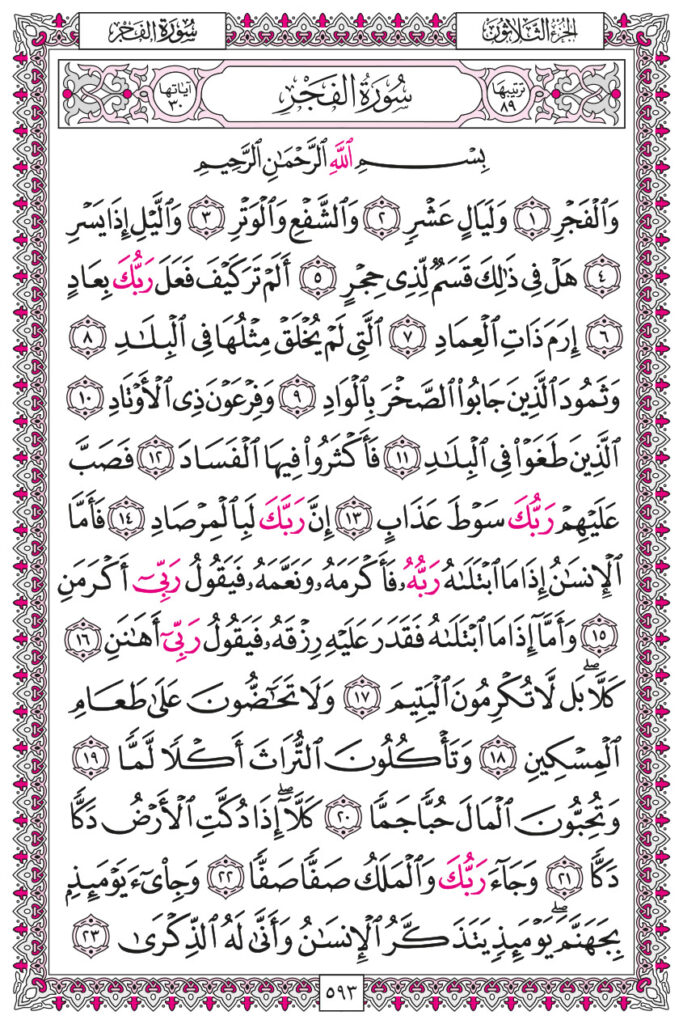 الجزء الثلاثون
سورة الفجر
ترتيبها ٨٩
سُورَةُ الفَجْرِ
آياتها ٣٠
بِسْمِ اللَّهِ الرَّحْمَٰنِ الرَّحِيمِ
وَٱلْفَجْرِ ١ وَلَيَالٍ عَشْرٍ ٢ وَٱلشَّفْعِ وَٱلْوَتْرِ ٣ وَٱلَّيْلِ إِذَا يَسْرِ
٤ هَلْ فِى ذَٰلِكَ قَسَمٌ لِّذِى حِجْرٍ ٥ أَلَمْ تَرَ كَيْفَ فَعَلَ رَبُّكَ بِعَادٍ
٦ إِرَمَ ذَاتِ ٱلْعِمَادِ ٧ ٱلَّتِى لَمْ يُخْلَقْ مِثْلُهَا فِى ٱلْبِلَٰدِ ٨
وَثَمُودَ ٱلَّذِينَ جَابُوا۟ ٱلصَّخْرَ بِٱلْوَادِ ٩ وَفِرْعَوْنَ ذِى ٱلْأَوْتَادِ ١٠
ٱلَّذِينَ طَغَوْا۟ فِى ٱلْبِلَٰدِ ١١ فَأَكْثَرُوا۟ فِيهَا ٱلْفَسَادَ ١٢ فَصَبَّ
عَلَيْهِمْ رَبُّكَ سَوْطَ عَذَابٍ ١٣ إِنَّ رَبَّكَ لَبِٱلْمِرْصَادِ ١٤ فَأَمَّا
ٱلْإِنسَٰنُ إِذَا مَا ٱبْتَلَىٰهُ رَبُّهُۥ فَأَكْرَمَهُۥ وَنَعَّمَهُۥ فَيَقُولُ رَبِّىٓ أَكْرَمَنِ
١٥ وَأَمَّآ إِذَا مَا ٱبْتَلَىٰهُ فَقَدَرَ عَلَيْهِ رِزْقَهُۥ فَيَقُولُ رَبِّىٓ أَهَٰنَنِ ١٦
كَلَّا ۖ بَل لَّا تُكْرِمُونَ ٱلْيَتِيمَ ١٧ وَلَا تَحَٰٓضُّونَ عَلَىٰ طَعَامِ
ٱلْمِسْكِينِ ١٨ وَتَأْكُلُونَ ٱلتُّرَاثَ أَكْلًا لَّمًّا ١٩
وَتُحِبُّونَ ٱلْمَالَ حُبًّا جَمًّا ٢٠ كَلَّآ ۖ إِذَا دُكَّتِ ٱلْأَرْضُ دَكًّا
دَكًّا ٢١ وَجَآءَ رَبُّكَ وَٱلْمَلَكُ صَفًّا صَفًّا ٢٢ وَجِا۟ىٓءَ يَوْمَئِذٍۭ
بِجَهَنَّمَ ۚ يَوْمَئِذٍ يَتَذَكَّرُ ٱلْإِنسَٰنُ وَأَنَّىٰ لَهُ ٱلذِّكْرَىٰ ٢٣
٥٩٣